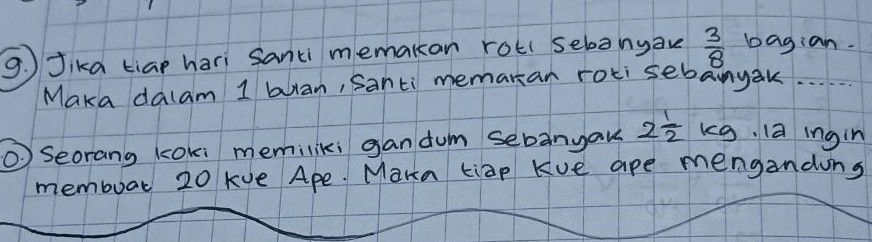 9.) Jika tiap hari Santi memakan roti sebanyak 3/8 bagian.
Maka dalam 1 bulan, Santi memakan roti sebanyak......
0) Seorang koki memiliki gandum sebanyak 2 1/2 kg. ia ingin
membuat 20 kue Ape. Maka tiap kue ape mengandung